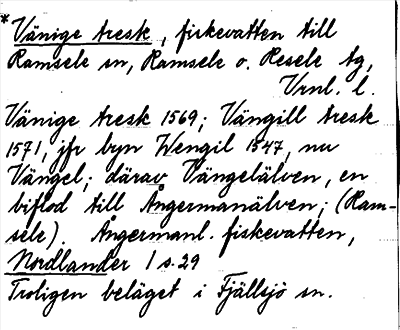 *Vänige tresk, fiskevatten till
Ramsele sn, Ramsele o. Resele tg,
Vrnl. l.
Vänige tresk 1569; Vängill tresk
1571, jfr byn Wengil 1547, nu
Vängel; därav Vängelälven, en
biflod till Ångermanälven; (Ram-
sele). Ångermanl. fiskevatten,
Nordlander 1 s. 29
Troligen beläget i Fjällsjö sn.